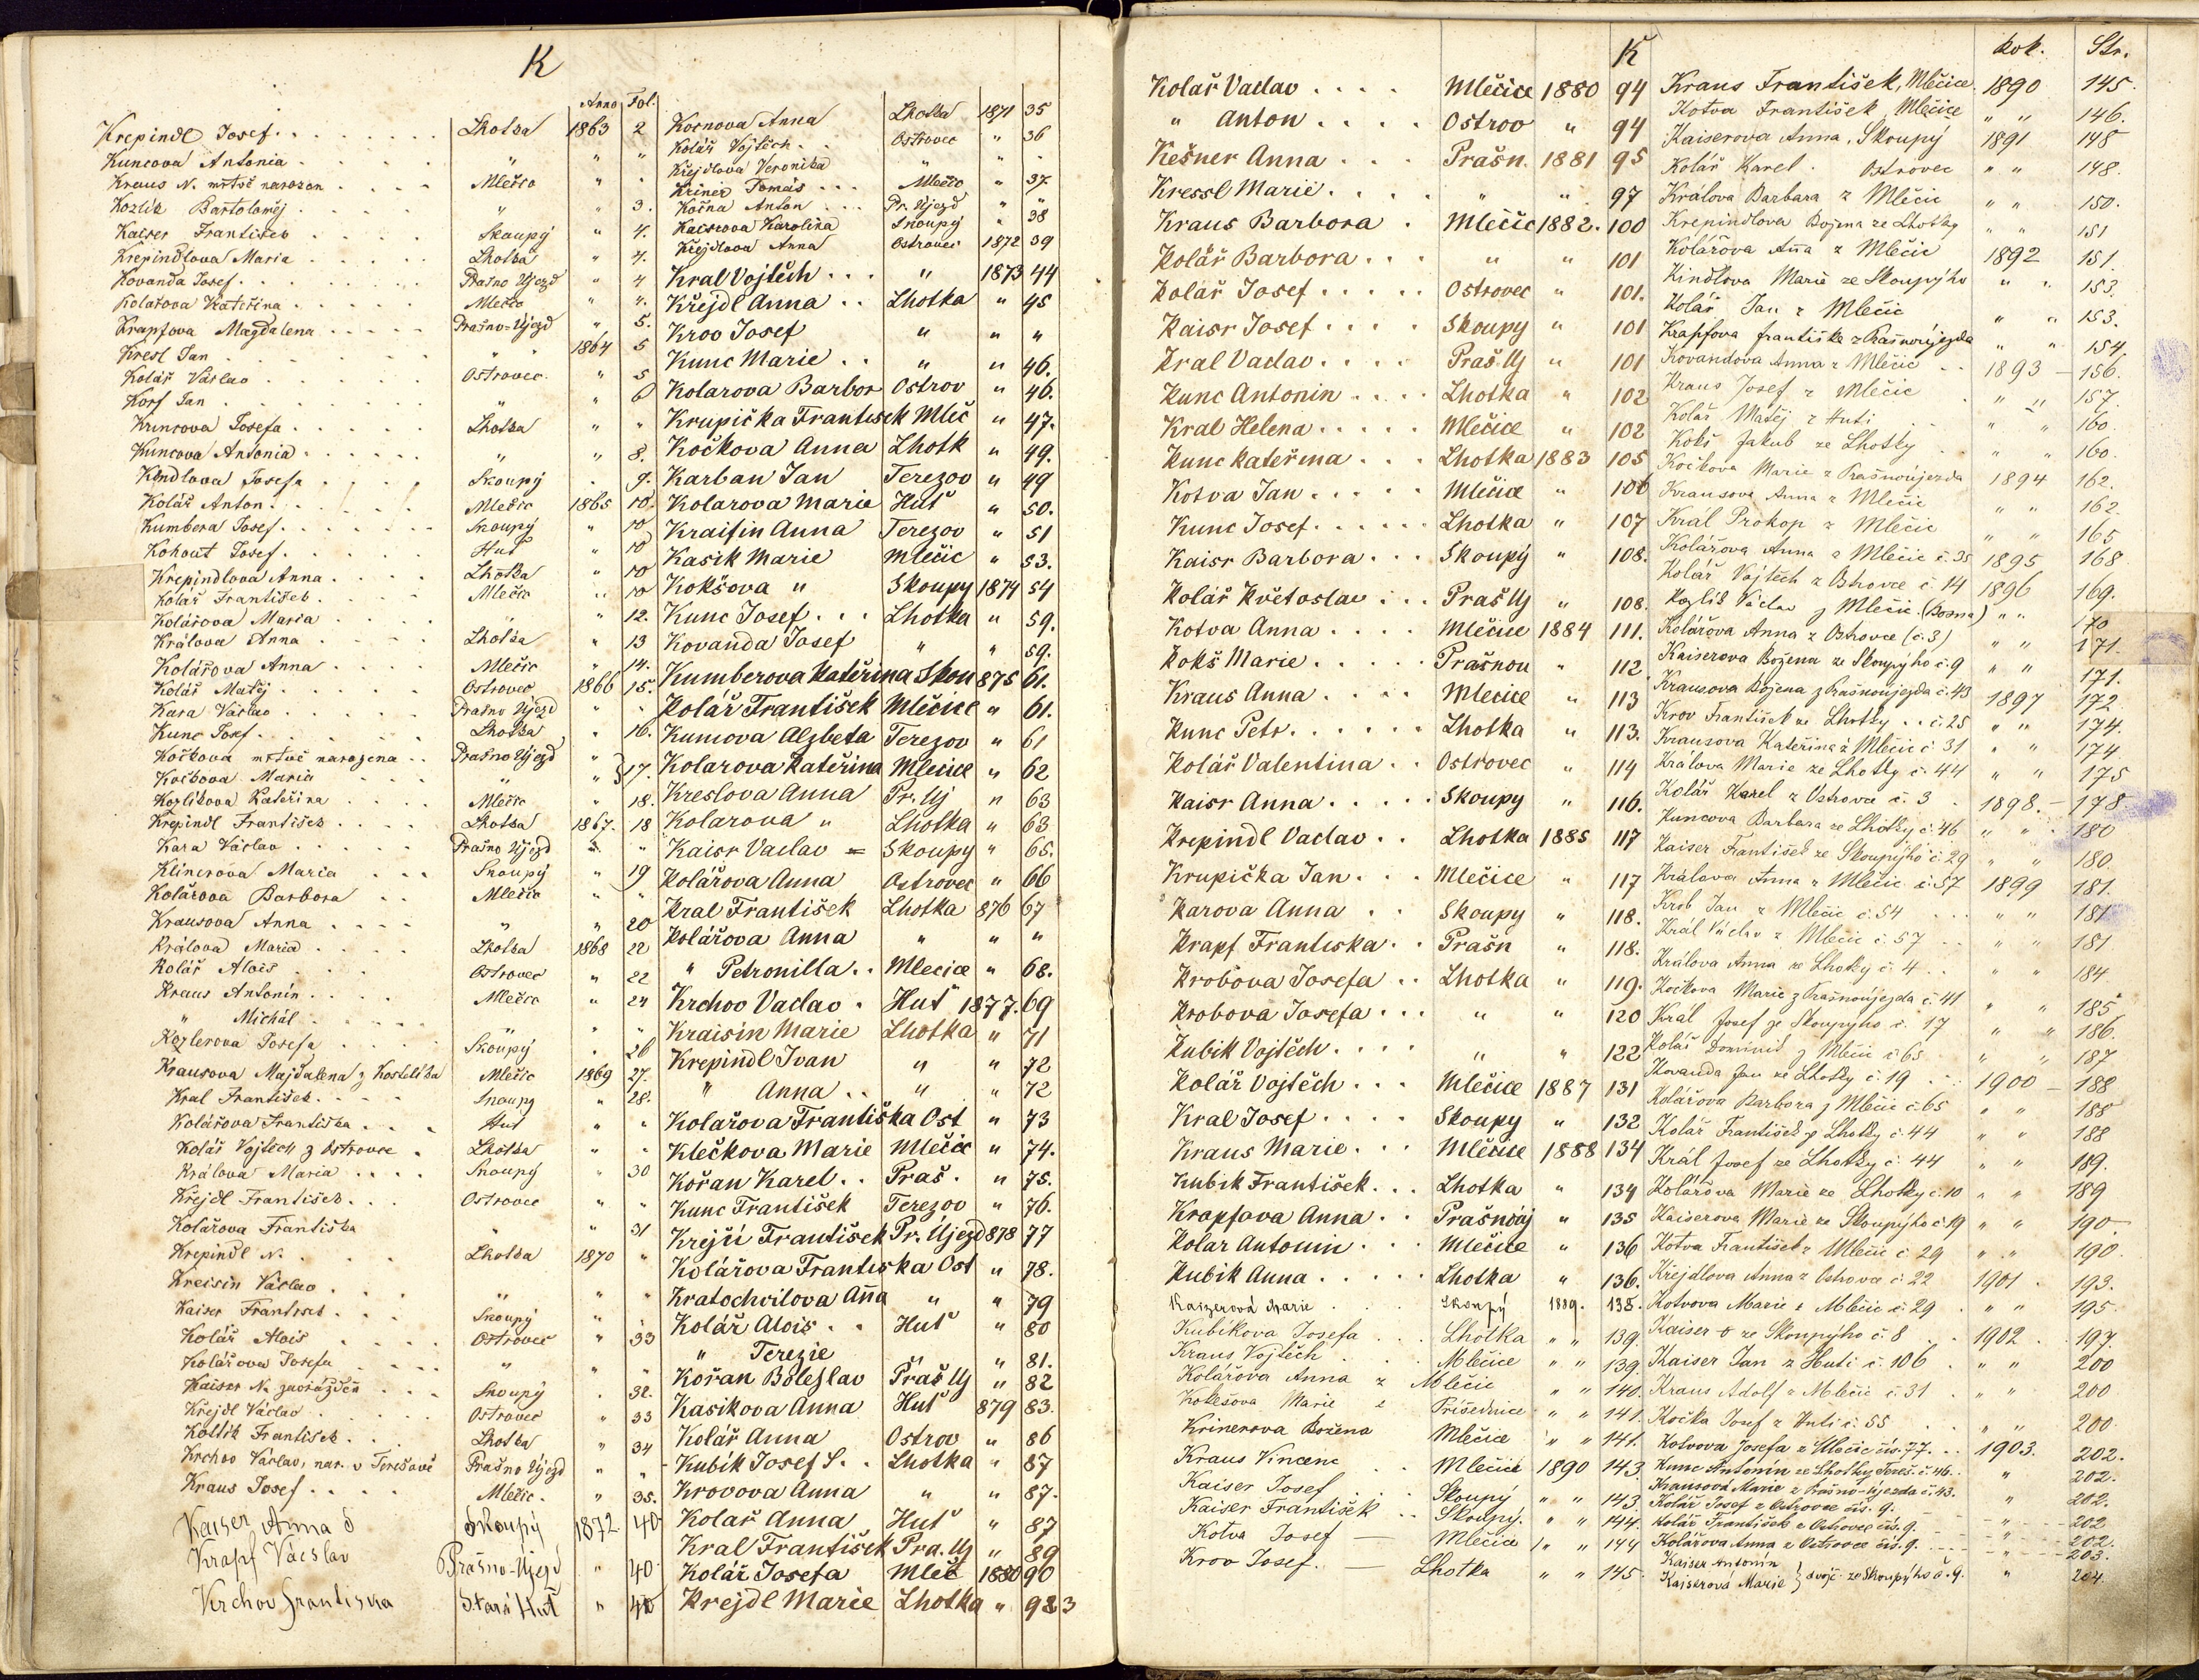 K
Anno Fol.
Krepindl Josef . . . . Lhotka 1863 2
Kuncova Antonia . . . . " " "
Kraus N. mrtvě narozen . . . . Mlečic " "
Kozlik Bartoloměj . . . . " " 3.
Kaiser František . . . . Skoupý " 4.
Krepindlova Maria . . . . Lhotka " 4.
Kovanda Josef . . . . Prašno Újezd " 4
Kolařova Kateřina . . . . Mlečic " 4.
Krapfova Magdalena . . . . Prašno-Újezd " 5.
Kresl Jan . . . . " " 1864 5
Kolář Václav . . . . Ostrovec " 5
Korf Jan . . . . " " 6
Kuncova Josefa . . . . Lhotka " "
Kuncova Antonia . . . . " " 8.
Kindlova Josefa . . . . Skoupý " 9.
Kolář Anton . . . . Mlečic 1865 10.
Kumbera Josef . . . . Skoupý " 10
Kohout Josef . . . . Huť " 10
Krepindlova Anna . . . . Lhotka " 10
Kolář František . . . . Mlečic " 10
Kolářova Maria . . . . " 12.
Králova Anna . . . . Lhotka " 13
Kolářova Anna . . . . Mlečic " 14.
Kolář Matěj . . . . Ostrovec 1866 15.
Kara Václav . . . . Prašno Újezd " "
Kunc Josef . . . . Lhotka " 16.
Kočkova mrtvě narozena . . Prašno Újezd "
Kočkova Maria . . . . " " 17.
Kozlikova Kateřina . . . . Mlečic " 18.
Krepindl František . . . . Lhotka 1867. 18
Kara Václav . . . . Prašno Újezd " "
Klinerova Maria . . . Skoupý " 19
Kolářova Barbora . . Mlečic " "
Krausova Anna . . . . " " 20
Králova Maria . . . . Lhotka 1868 22
Kolář Alois . . . . Ostrovec " 22
Kraus Antonín . . . . Mlečic " 24
" Michál . . . . " " "
Kozlerova Josefa . . . . Skoupý " 26
Krausova Majdalena z Kostelíka Mlečic 1869 27.
Kral František . . . . Skoupý " 28.
Kolářova Františka . . . Huť " "
Kolář Vojtěch z Ostrovce . Lhotka " "
Králova Maria . . . . Skoupý " 30
Křejdl František . . . Ostrovec " "
Kolářova Františka " " 31
Krepindl N. . . . . Lhotka 1870 "
Kreisin Václav . . . . " " "
Kaiser František . . . Skoupý " "
Kolář Alois . . . . Ostrovec " 33
Kolářova Josefa . . . . " " "
Kaiser N. . . . Skoupý . 32.
Křejdl Václav . . . . Ostrovec " 33
Kottik František . . . Lhotka " 34
Krchov Václav, nar. v Terešově Prašno Újezd " "
Kraus Josef . . . . Mlečic. " 35.
Kaiser Anna Skoupý 1872 40
Krapf Václav Prašno-Újezd " 40
Krchov Františka Stará Huť " 40
Kocnova Anna Lhotka 1871 35
Kolář Vojtěch . . Ostrovec " 36
Křejdlová Veronika " " "
Kriner Tomáš . . . Mlečic " 37.
Kočna Anton . . . Pr. Újezd " "
Kaiserova Karolina Skoupý " 38
Křejdlova Anna Ostrovec 1872 39
Kral Vojtěch . . . " 1873 44
Křejdl Anna . . Lhotka " 45
Krov Josef " " "
Kunc Marie . . " " 46.
Kolarova Barbor Ostrov " 46.
Krupička Frantisek Mlič " 47.
Kočkova Anna Lhotk " 49.
Karban Jan Terezov " 49
Kolarova Marie Huť " 50.
Kraifin Anna Terezov " 51
Kasik Marie Mlečic " 53.
Kokšova " Skoupy 1874 54
Kunc Josef . . . Lhotka " 59.
Kovanda Josef " " 59.
Kumberova Kateřina Skou 875 61.
Kolář František Mlečice " 61.
Kuncova Alzbeta Terezov " 61
Kolarova Kateřina Mlecice " 62
Kreslova Anna Pr. Uj " 63
Kolarova " Lhotka " 63
Kaisr Vaclav = Skoupy " 65.
Kolářova Anna Ostrovec " 66
Kral František Lhotka 876 67
Kolářova Anna " " "
" Petronilla . . Mlecice " 68.
Krchov Vaclav . Huť 1877. 69
Kraisin Marie Lhotka " 71
Krepindl Ivan " " 72
" Anna . . " " 72
Kolařova Františka Ost " 73
Klečkova Marie Mlečic " 74.
Kořan Karel . . Praš. " 75.
Kunc František Terezov " 76.
Krejčí František Pr. Újezd 878 77
Kolářova Františka Ost " 78.
Kratochvilova Aña " " 79
Kolář Alois . . Huť " 80
" Terezie " " 81.
Kořan Boleslav Praš Uj " 82
Kasikova Anna Huť 879 83.
Kolář Anna Ostrov " 86
Kubík Josef S. . Lhotka " 87
Krovova Anna " " 87.
Kolař Anna Huť " 87
Kral František Pra. Uj " 89
Kolář Josefa Mleč 1880 90
Krejdl Marie Lhotka " 923
K
Kolař Vaclav . . . . Mlečice 1880 94
" Anton . . . . Ostrov " 94
Kešner Anna . . . Prašn. 1881 95
Kressl Marie . . . . " " 97
Kraus Barbora . Mlečic 1882. 100
Kolář Barbora . . . " " 101
Kolář Josef . . . . . Ostrovec " 101.
Kaisr Josef . . . . Skoupy " 101
Kral Vaclav . . . . Praš. Uj " 101
Kunc Antonin . . . . Lhotka " 102
Kral Helena . . . . . Mlečice " 102
Kunc Kateřina . . . Lhotka 1883 105
Kotva Jan . . . . . Mlečice " 106
Kunc Josef . . . . . . Lhotka " 107
Kaisr Barbora . . . Skoupý " 108.
Kolář Květoslav . . . Praš Uj " 108.
Kotva Anna . . . . Mlečice 1884 111.
Kokš Marie . . . . . Prašnou " 112
Kraus Anna . . . . Mlecice " 113
Kunc Petr . . . . . . Lhotka " 113.
Kolář Valentina . . Ostrovec " 114
Kaisr Anna . . . . . Skoupy " 116.
Krepindl Vaclav . . Lhotka 1885 117
Krupička Jan . . . Mlečice " 117
Karova Anna . . Skoupy " 118.
Krapf Frantiska . . Prašn " 118.
Krobova Josefa . . Lhotka " 119.
Krobova Josefa . . . " " 120
Kubik Vojtěch . . . . " " 122
Kolář Vojtěch . . . Mlečice 1887 131
Kral Josef . . . . Skoupy " 132
Kraus Marie . . . Mlečice 1888 134
Kubik František . . . Lhotka " 134
Krapfova Anna . . Prašnoúj " 135
Kolar Antonin . . . Mlečice " 136
Kubik Anna . . . . . Lhotka " 136.
Kaizerová Marie . . . Skoupý 1889. 138.
Kubikova Josefa . . . Lhotka " " 139.
Kraus Vojtěch . . . Mlečice " " 139.
Kolářova Anna z Mlečic " " 140.
Kolesova Marie z Příšednice " " 141.
Krinerova Božena Mlečice " " 141.
Kraus Vincenc . . Mlečice 1890 143
Kaiser Josef . . . Skoupý " " 143.
Kaiser František . . Skoupý. " " 144.
Kotva Josef — Mlečice " " 144
Krov Josef. — Lhotka " " 145.
Rok. Str.
Kraus František, Mlečice 1890 145.
Kotva František Mlečice " " 146.
Kaiserova Anna, Skoupý 1891 148
Kolář Karel . Ostrovec " " 148.
Králova Barbara z Mlečic " " 150.
Krepindlova Božena ze Lhotky " " 151
Kolářova Aña z Mlečic 1892 151.
Kindlova Marie ze Skoupýho " " 153.
Kolář Jan z Mlečic " " 153.
Krapfova františka z Prašnoújezda " " 154.
Kovandova Anna z Mlečic . . 1893 — 156.
Kraus Josef z Mlečic . " " 157.
Kolář Matěj z Huti . " " 160.
Kokš Jakub ze Lhotky . " " 160.
Kočkova Marie z Prašnoújezda 1894 162.
Krausova Anna z Mlečic " " 162.
Král Prokop z Mlečic " " 165
Kolářova Anna z Mlečic č. 35 1895 168
Kolář Vojtěch z Ostrovce č. 14 1896 169.
Kozlík Václav z Mlečic (Bosna) " " 170
Kolářova Anna z Ostrovce (č. 3) " " 171.
Kaiserova Božena ze Skoupýho č. 9 " " 171.
Krausova Božena z Prašnoújezda č. 43 1897 172
Krov František ze Lhotky . . č. 25 " " 174.
Krausova Kateřina z Mlečic č. 31 " " 174
Králova Marie ze Lhotky č. 44 " " 175
Kolář Karel z Ostrova č. 3 . 1898. — 178
Kuncova Barbara ze Lhotky č. 46 " " . 180
Kaiser František ze Skoupýho č. 29 " " 180.
Králova Anna z Mlečic č. 57 1899 181.
Krob Jan z Mlečic č. 54 . . . " " 181
Král Václav z Mlečic č. 57 . . " " 181
Králova Anna ze Lhotky č. 4 . . " " 184
Kočkova Marie z Prašnoújezda č. 41 " " 185
Král Josef ze Skoupýho č. 17 " " 186.
Kolář Dominik z Mlečic č 65 " " 187
Kovanda Jan ze Lhotky č. 19 . . . 1900 — 188
Kolářova Barbora z Mlečic č. 65 " " 188
Kolář František z Lhotky č. 44 " " 188
Král Josef ze Lhotky č. 44 " " 189.
Kolářova Marie ze Lhotky č. 10 " " 189
Kaiserova Marie ze Skoupýho č. 19 " " 190
Kotva František z Mlečic č. 29 " " 190.
Křejdlova Anna z Ostrova č. 22 1901 . 193.
Kotvova Marie z Mlečic č. 29 . " " 195.
Kaiser ze Skoupýho č. 8 . . 1902 . . 197.
Kaiser Jan z Huti č. 106 . " " 200
Kraus Adolf z Mlečic č. 31 . " " 200
Kočka Josef z Huti č. 55 . . . " " 200.
Kotvova Josefa z Mlečic čís. 77. . . 1903. 202.
Kunc Antonín ze Lhotky Tereš. č. 46. . " 202.
Krausová Marie z Prašno-újezda č. 43. " 202.
Kolář Josef z Ostrovce čís. 9. — " — 202
Kolář František z Ostrovce čís. 9. — " — 202.
Kolářova Anna z Ostrovce čís. 9. — " — 203.
Kaiser Antonín
Kaiserová Marie } dvojč. ze Skoupýho č. 9. " 204